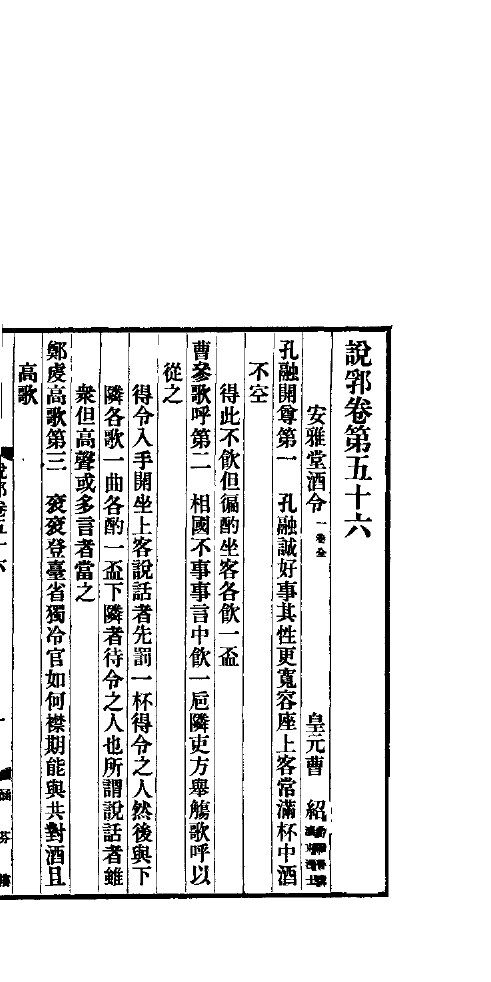 說郛卷第五十六
安雅堂酒令一卷全 皇元曹 紹
孔融開尊第一 孔融誠好事其性更寬容座上客常滿杯中酒
不空
得此不飲但徧酌坐客各飲一盃
曹參歌呼第二 相國不事事言中飲一巵隣吏方舉觴歌呼以
從之
得令入手開坐上客說話者先罰一杯得令之人然後與下
隣各歌一曲各酌一盃下隣者待令之人也所謂說話者雖
衆但高聲或多言者當之
鄭虔高歌第三 袞袞登臺省獨冷官如何襟期能與共對酒且
高歌
說郛卷五十六 一 涵芬樓